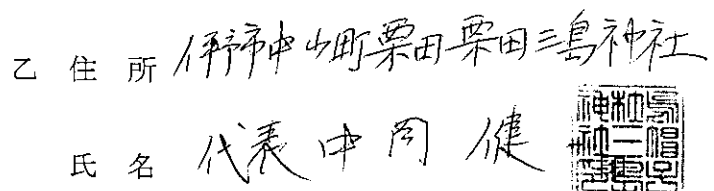 乙 住 所 伊予市中山町栗田栗田三島神社
氏 名 代表 中岡 健